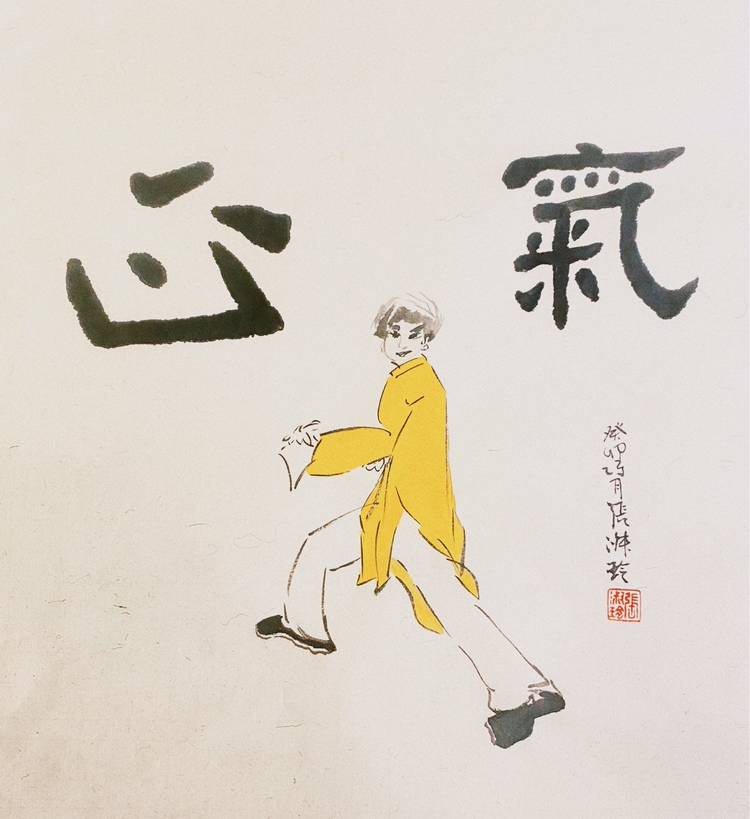 正氣
癸卯 月張淑玲
張淑玲